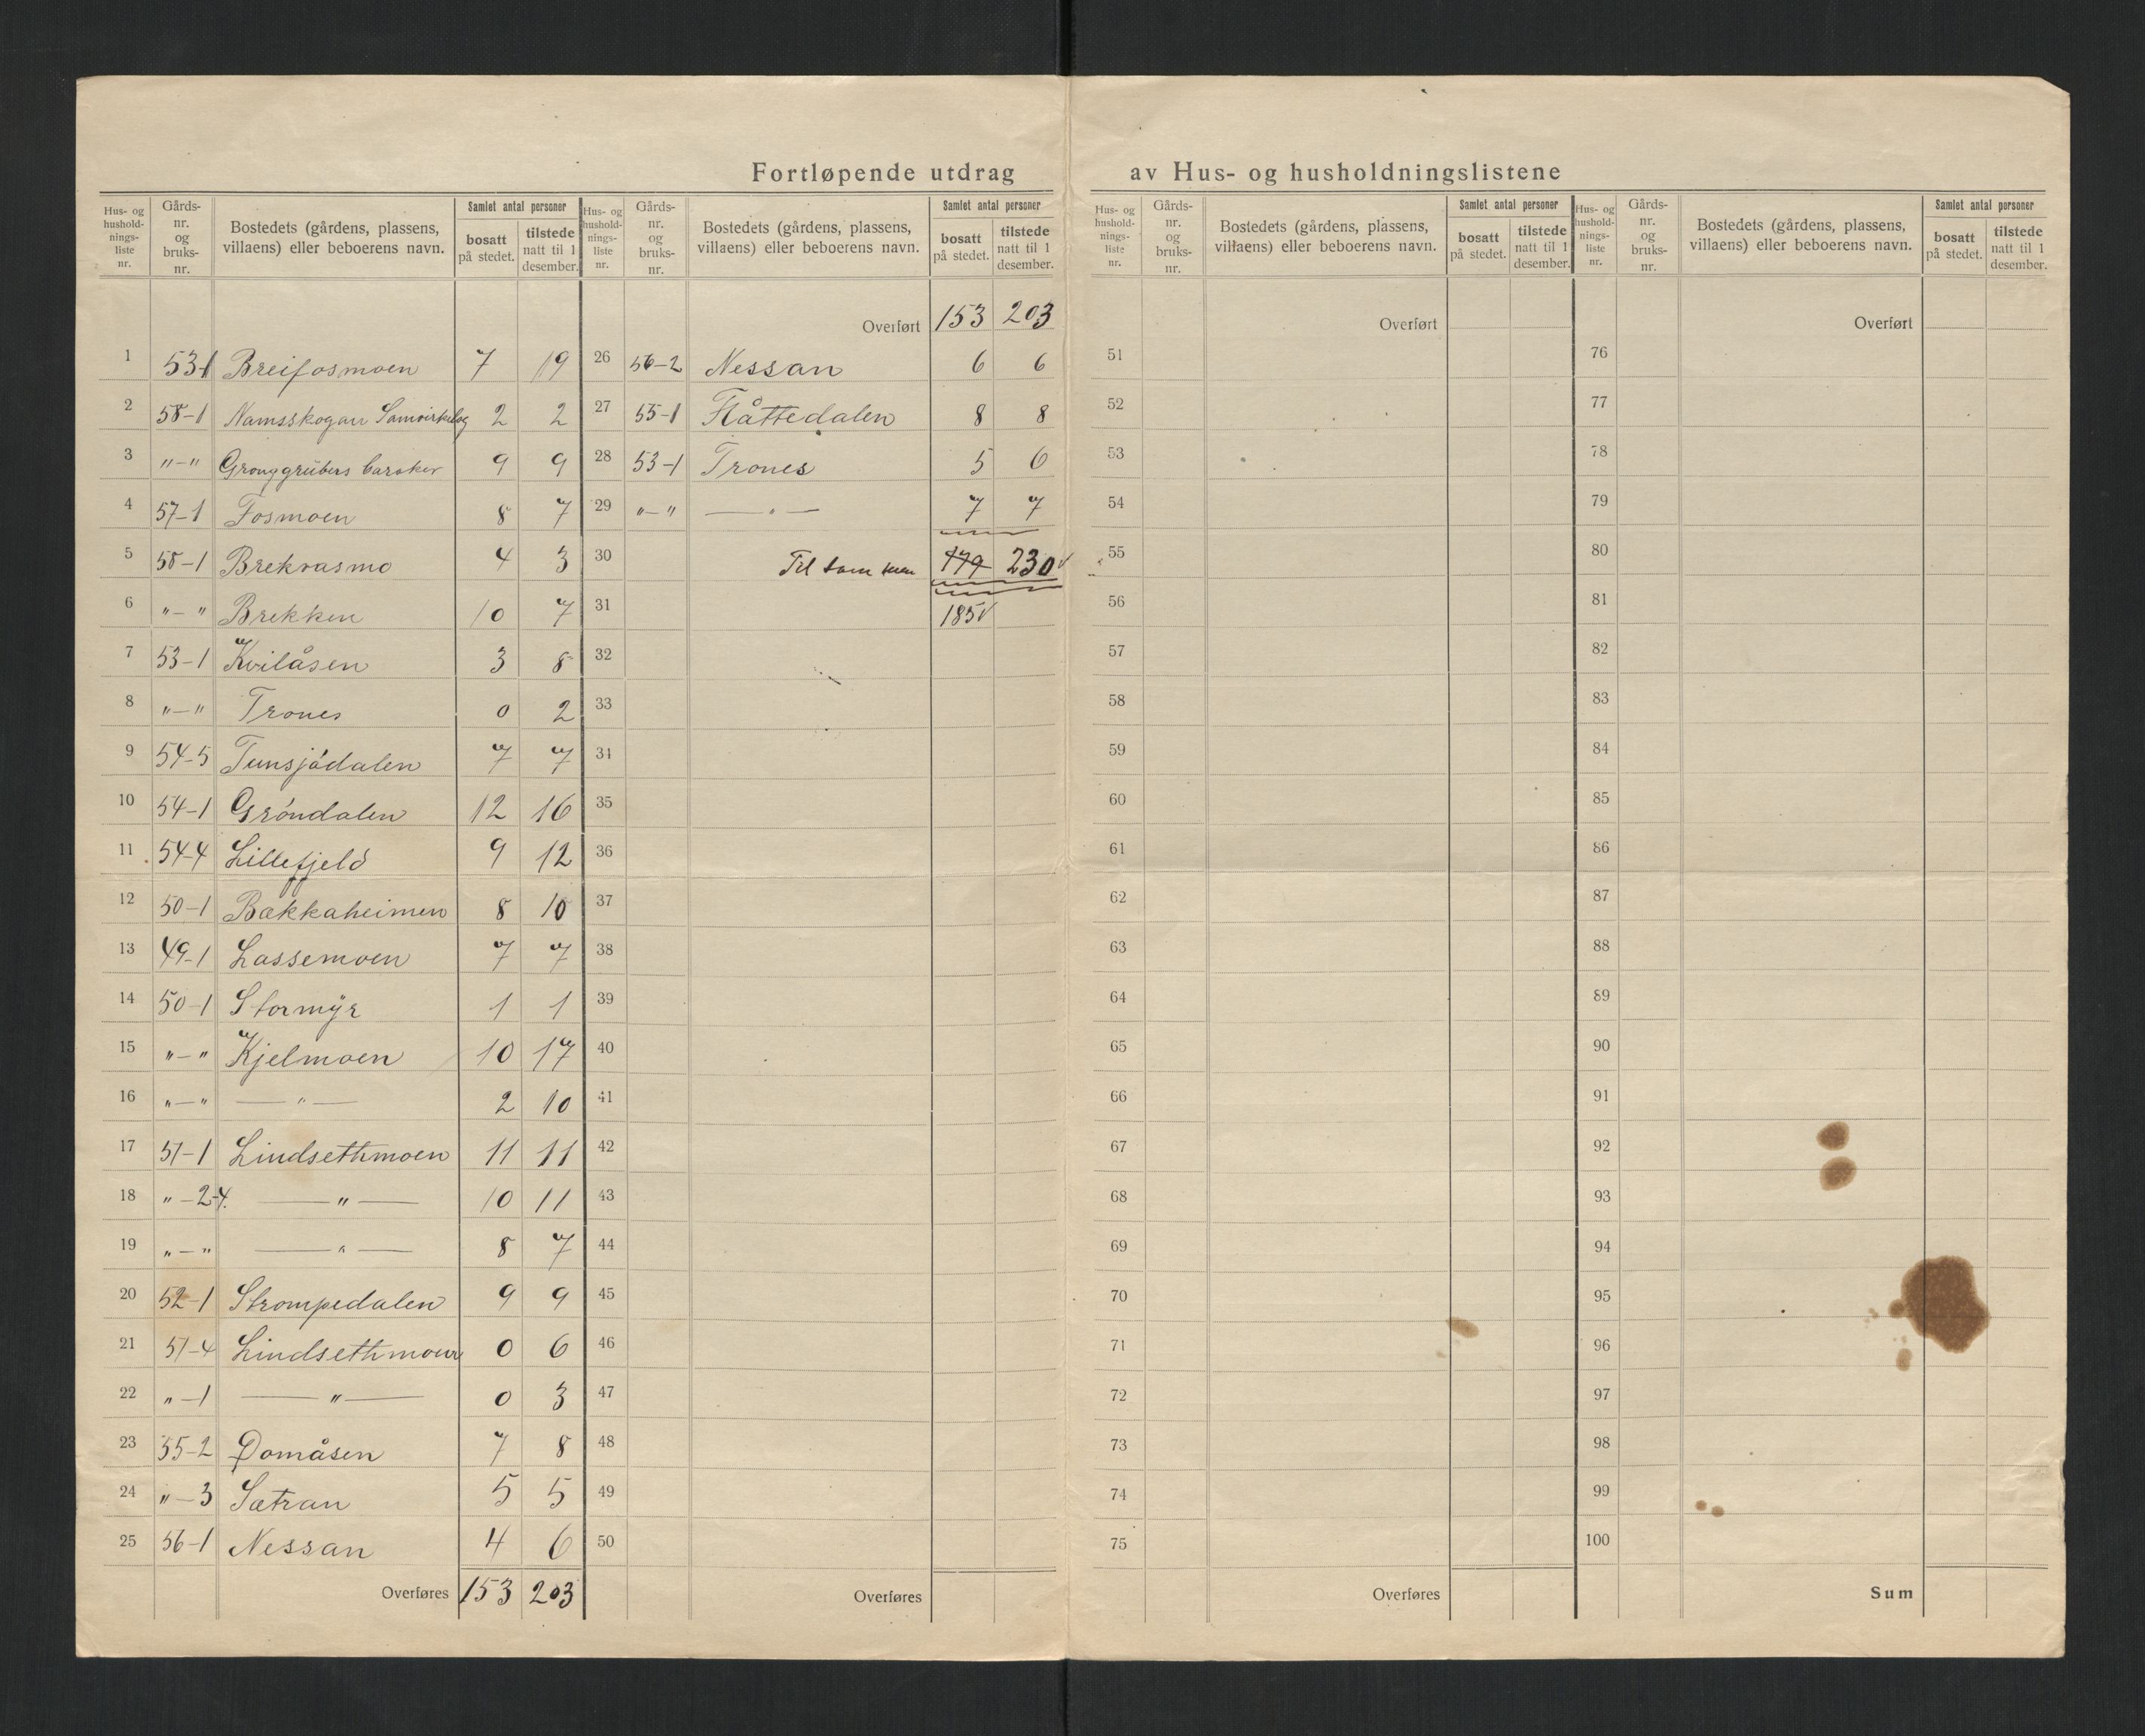 Fortløpende utdrag av Hus- og husholdningslistene
Hus- og hushold-nings-liste nr. Gårds-nr. og bruks-nr. Bostedets (gårdens, plassens, villaens) eller beboerens navn. Samlet antal personer bosatt på stedet. tilstede natt til 1 desember.
1 53-1 Breifosmoen 7 19
2 58-1 Namsskogan Samvirkelag 2 2
3 "-" Gronggrubers barakker 9 9
4 57-1 Fosmoen 8 7
5 58-1 Brekvasmo 4 3
6 "-" Brekken 10 7
7 53-1 Kvilåsen 3 8
8 "-" Trones 0 2
9 54-5 Tunsjødalen 7 7
10 54-1 Grøndalen 12 16
11 54-4 Lillefjeld 9 12
12 50-1 Bækkaheimen 8 10
13 49-1 Lassemoen 7 7
14 50-1 Stormyr 1 1
15 "-" Kjelmoen 10 17
16 "-" — " — 2 10
17 51-1 Lindsethmoen 11 11
18 " -2-4. — " — 10 11
19 "-" — " — 8 7
20 52-1 Strompedalen 9 9
21 51-4 Lindsethmoen 0 6
22 " -1 — " — 0 3
23 55-2 Domåsen 7 8
24 " -3 Sætran 5 5
25 56-1 Nessan 4 6
Overføres 153 203
Hus- og hushold-nings-liste nr. Gårds-nr. og bruks-nr. Bostedets (gårdens, plassens, villaens) eller beboerens navn. Samlet antal personer bosatt på stedet. tilstede natt til 1 desember.
Overført 153 203
26 56-2 Nessan 6 6
27 55-1 Flåttedalen 8 8
28 53-1 Trones 5 6
29 "-" — " — 7 7
30 Til sammen 179 230 √
31 185 √
32
33
34
35
36
37
38
39
40
41
42
43
44
45
46
47
48
49
50
Overføres
Hus- og hushold-nings-liste nr. Gårds-nr. og bruks-nr. Bostedets (gårdens, plassens, villaens) eller beboerens navn. Samlet antal personer bosatt på stedet. tilstede natt til 1 desember.
Overført
51
52
53
54
55
56
57
58
59
60
61
62
63
64
65
66
67
68
69
70
71
72
73
74
75
Overføres
Hus- og hushold-nings-liste nr. Gårds-nr. og bruks-nr. Bostedets (gårdens, plassens, villaens) eller beboerens navn. Samlet antal personer bosatt på stedet. tilstede natt til 1 desember.
Overført
76
77
78
79
80
81
82
83
84
85
86
87
88
89
90
91
92
93
94
95
96
97
98
99
100
Sum